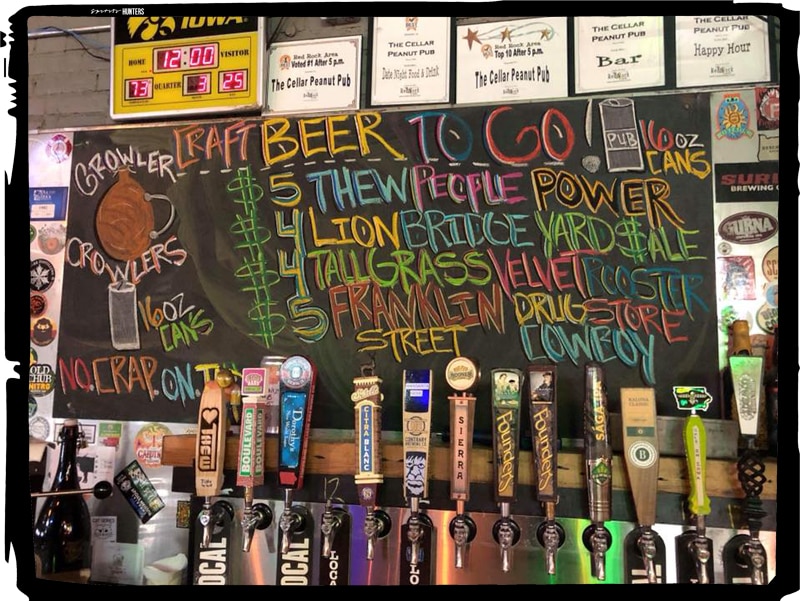 HUNTERS
IOWA
12:00
HOME
VISITOR
73
QUARTER
3
25
Red Rock Area
Voted #1 After 5 p.m.
The Cellar Peanut Pub
THE CELLAR
PEANUT PUB
Date Night Food & Drink
Red Rock Area
Top 10 After 5 p.m.
The Cellar Peanut Pub
THE CELLAR
PEANUT PUB
Bar
THE CELLAR
PEANUT PUB
Happy Hour
CRAFT BEER TO GO!
PUB
16 OZ
CANS
GROWLER
CROWLERS
16 OZ
CANS
$5 THEW PEOPLE POWER
$4 LION BRIDGE YARD $ALE
$4 TALLGRASS VELVET ROOSTER
$5 FRANKLIN STREET DRUG STORE COWBOY
NO. CRAP. ON.
BREWING CO.
SURNA
OLD
CHUB
NITRO
BREW
BOULEVARD
BOULEVARD
Dorothy's
CITRA BLANC
CONTRARY
BREWING CO.
SIERRA
Founders
Founders
KALONA
CLASSIC
B
LOCAL
LOCAL
LOCA
LO